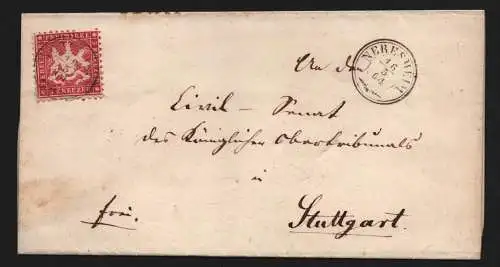 NERESHEIM
16
64
An den
Civil-Senat
des Königlicher Obertribunals
in
frei.
Stuttgart.
KREUZER